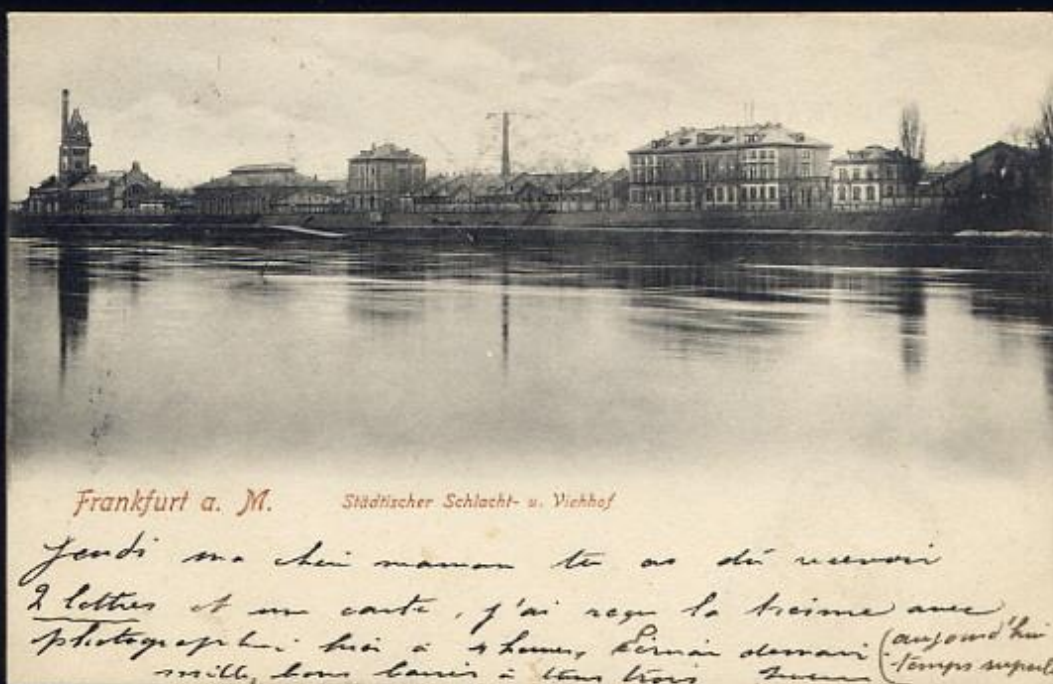 Frankfurt a. M. Städtischer Schlacht- u. Viehhof
Jeudi ma chère maman tu as dû recevoir
2 lettres et une carte, j'ai reçu la tienne avec
photographie hier à 4 heures, demain (aujourd'hui
mille bons baisers à tous trois temps superbe